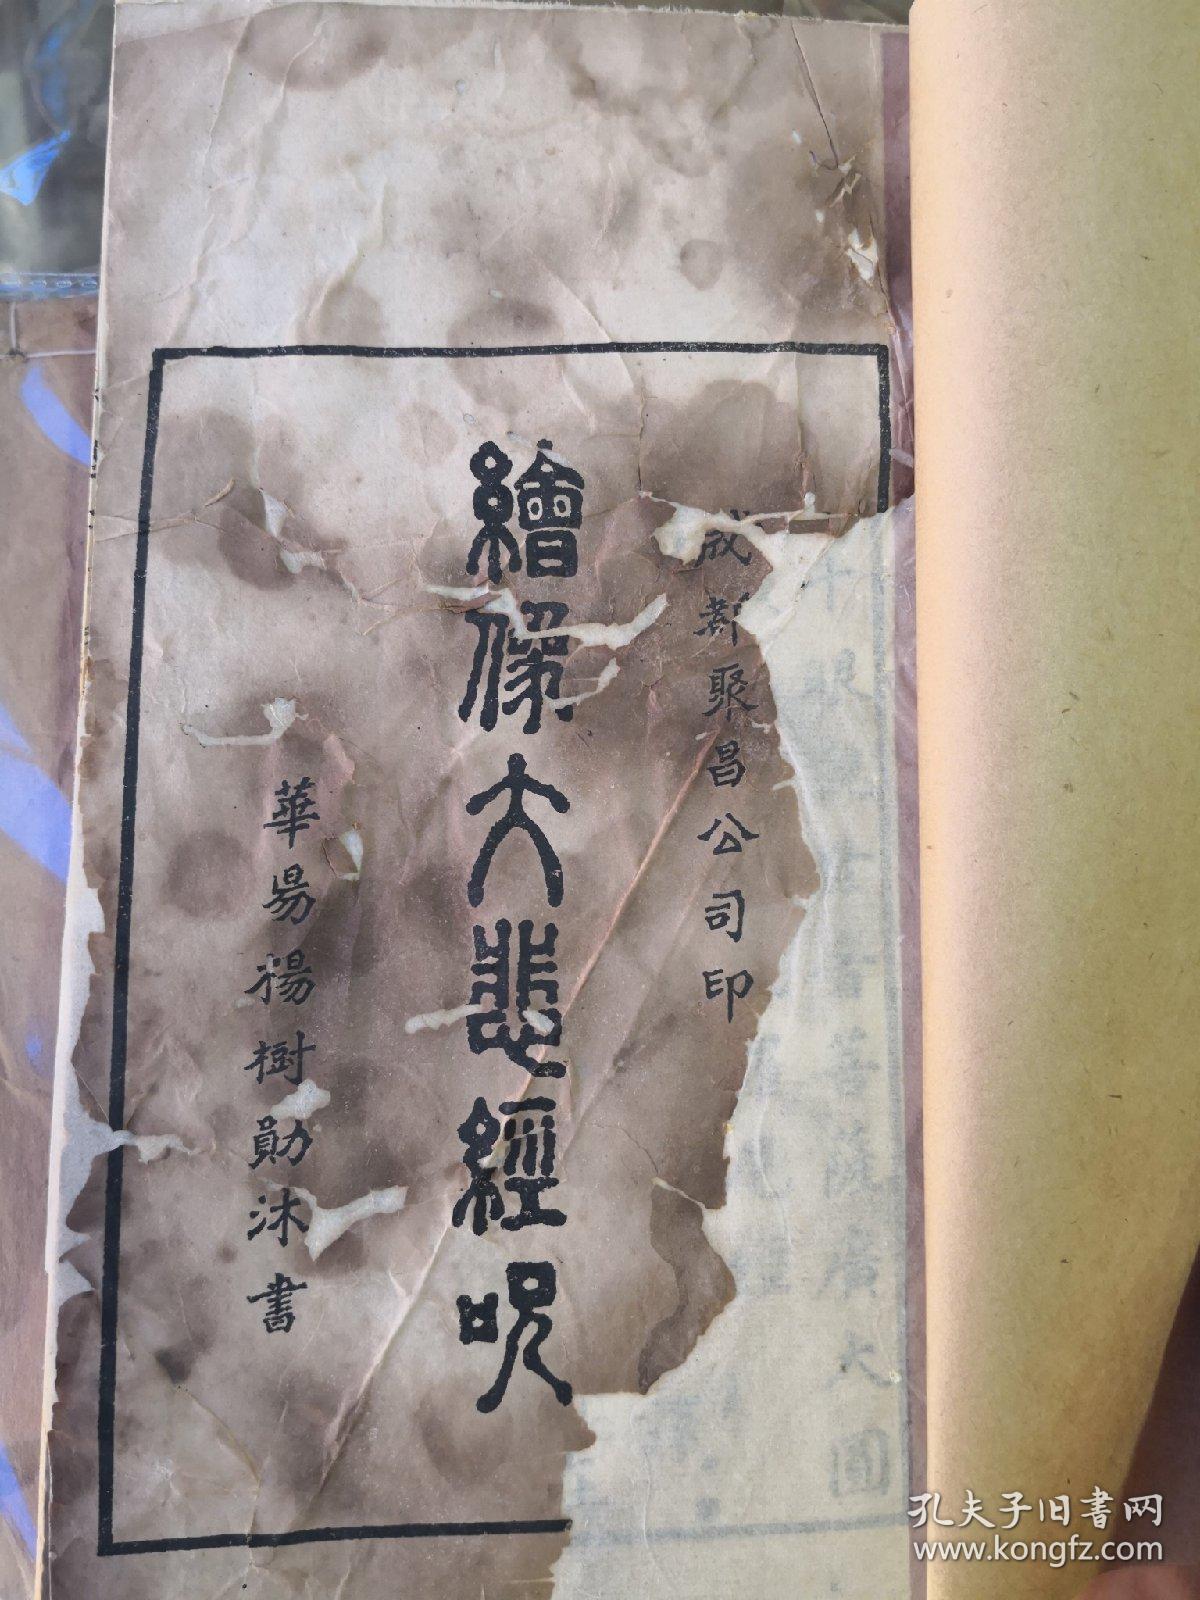 成都聚昌公司印
繪像大悲經呪
華昜楊樹勛沐書
大圓
孔夫子旧书网
www.kongfz.com